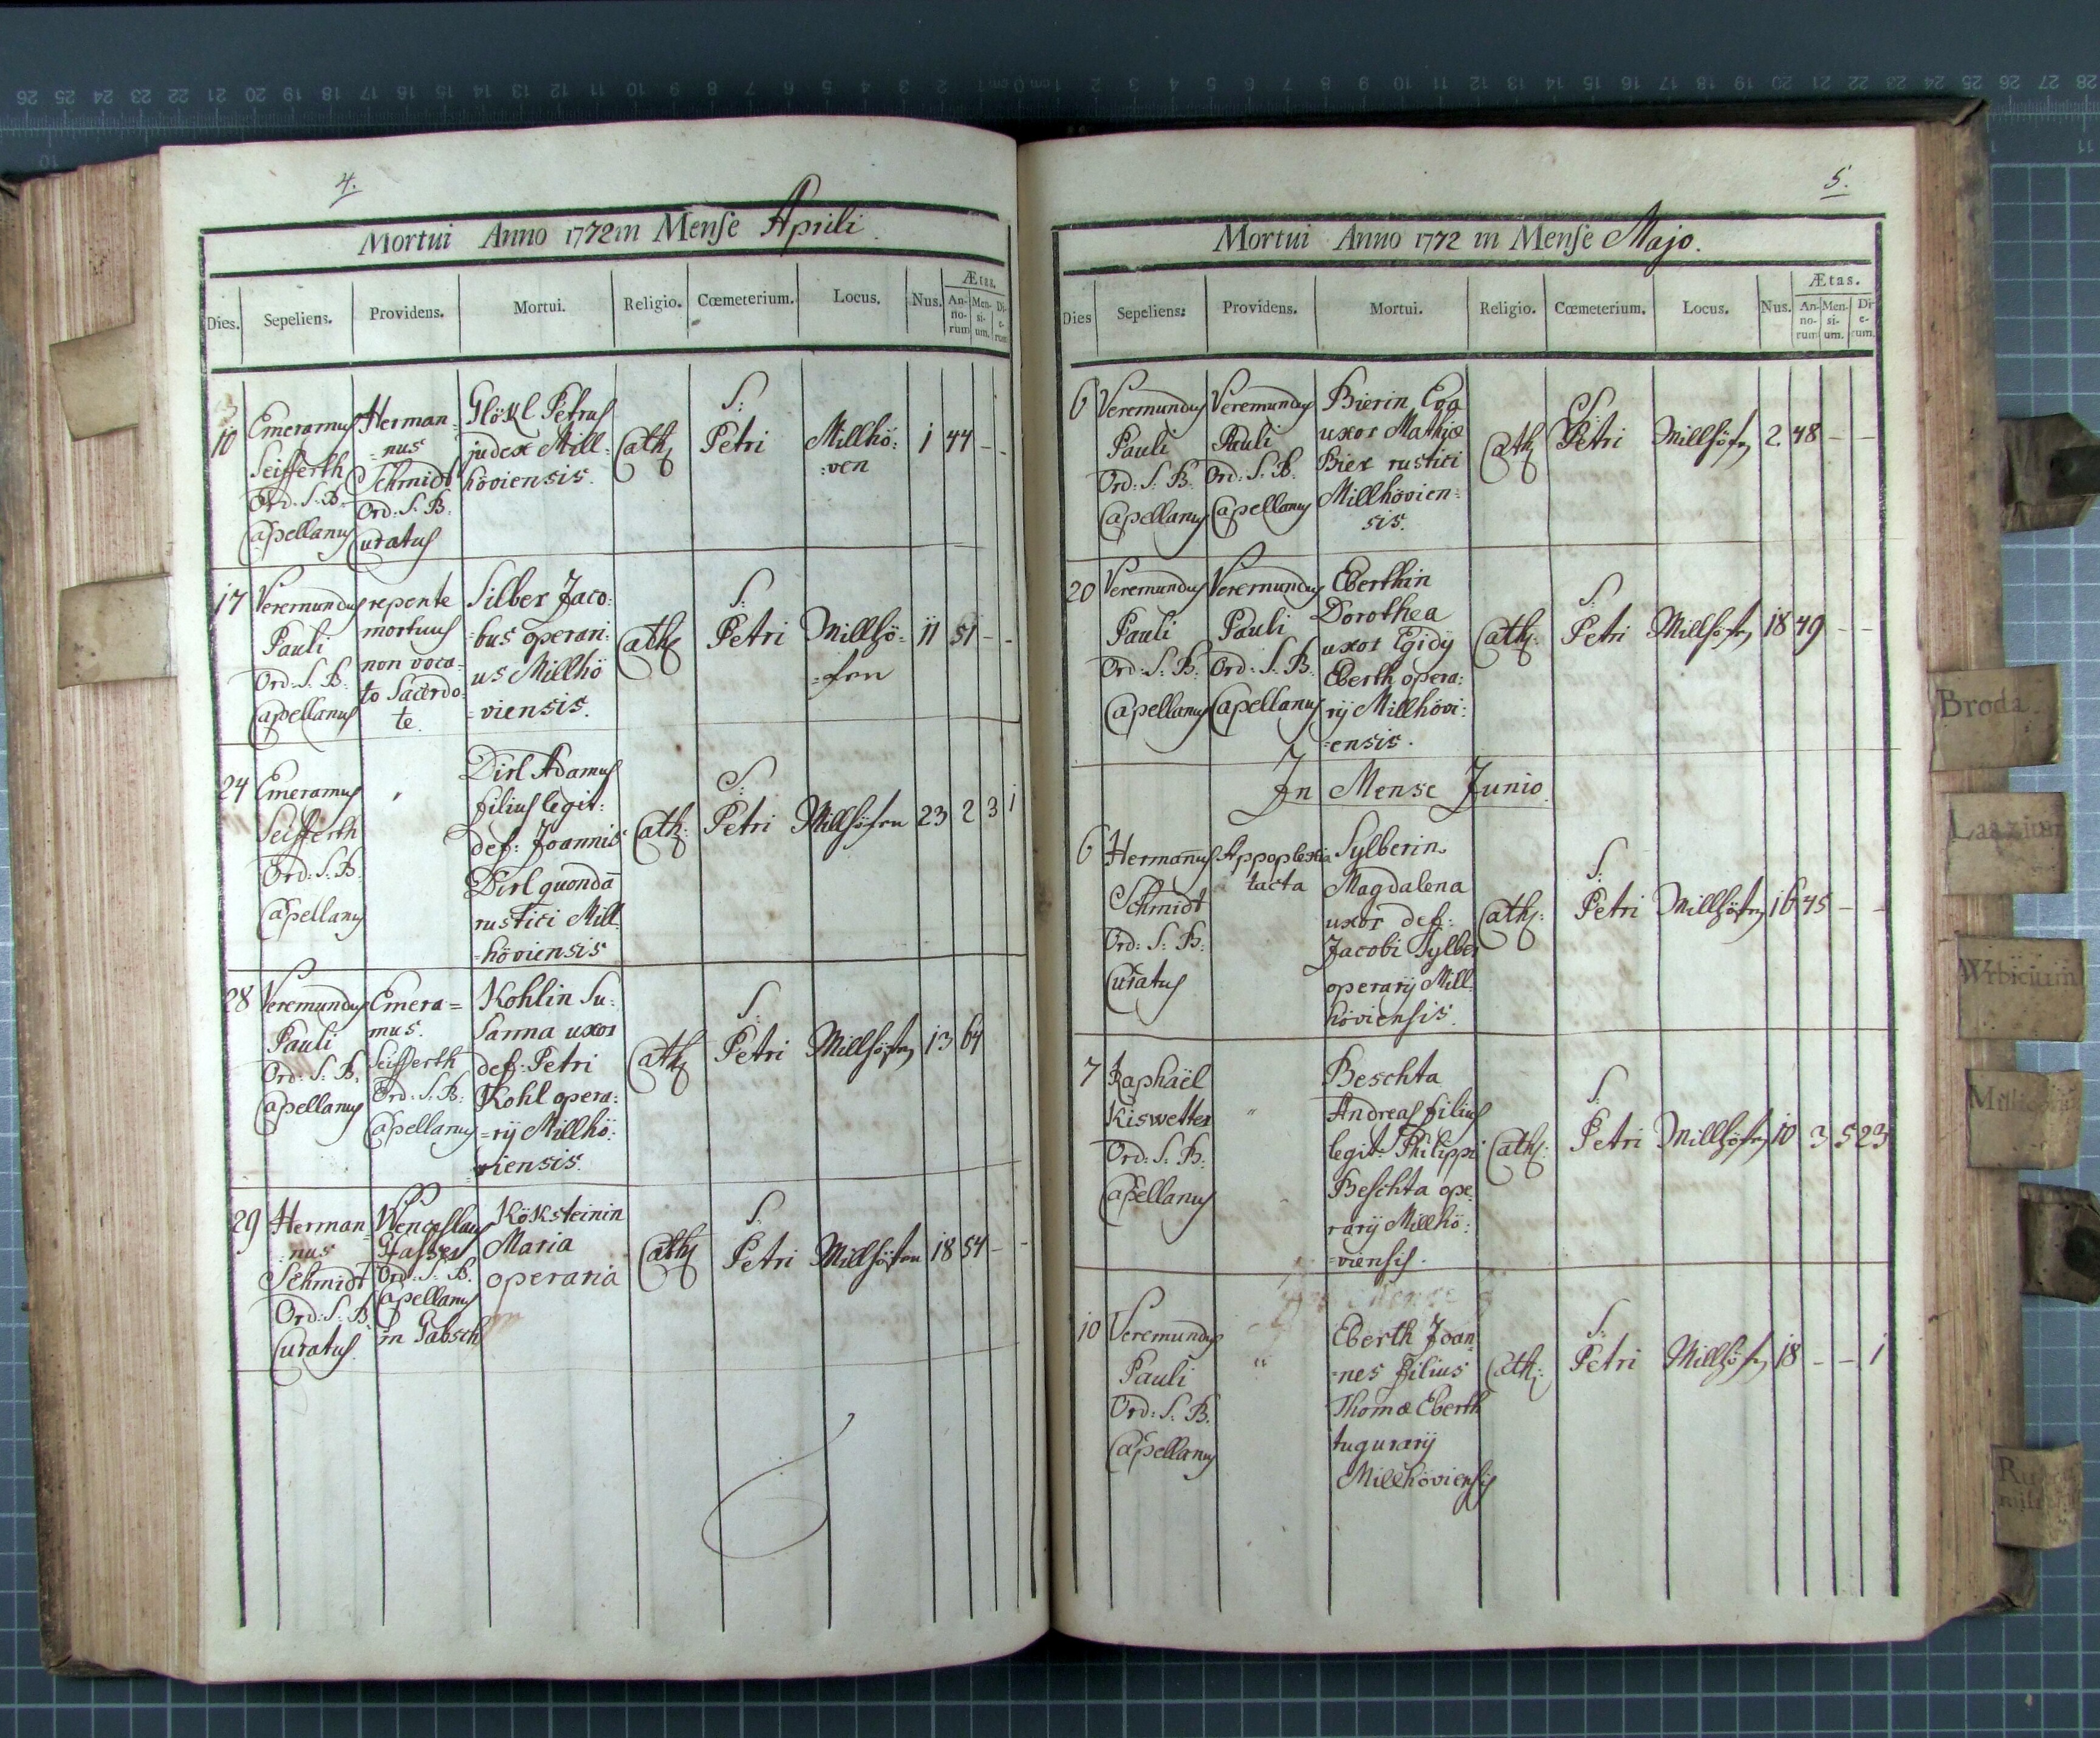 4.
Mortui Anno 1772 in Mense Aprili.
Dies. Sepeliens. Providens. Mortui. Religio. Cœmeterium. Locus. Nus. Ætas.
An-no-rum Men-si-um. Di-e-rum
10 Emeramus Seifferth Ord: S. B. Capellanus
Herman=
=nus
Schmidt
Ord: S. B.
Curatus
Glökl Petrus
judex Mill=
höviensis.
Cath
S:
Petri
Millhö:
:ven
1 44 - -
17 Veremundus
Pauli
Ord: S. B.
Capellanus
repente
mortuus
non voca=
to Sacerdo=
te.
Silber Jaco:
=bus operari:
us Millhö
=viensis.
Cath
S:
Petri
Millhö=
=fen
11 51 - -
24 Emeramus
Seifferth
Ord: S. B.
Capellanus
Dirl Adamus
filius legit:
def: Joannis
Dirl quondā
rustici Mill
=höviensis
Cath:
S:
Petri
Millhöfen
23 2 3 1
28 Veremundus
Pauli
Ord: S. B.
Capellanus
Emera=
mus.
Seifferth
Ord: S. B:
Capellanus
Kohlin Su:
sanna uxor
def: Petri
Kohl opera:
=rij Millhö:
viensis.
Cath
S:
Petri
Millhöfen
13 64
29 Herman=
:nus
Schmidt
Ord: S: B
Curatus.
Wenceslaus
Ord: S. B.
Capellanus
in Gabsch
Köksteinin
Maria
operaria
Cath
S:
Petri
Millhöfen
18 54 - -
5.
Mortui Anno 1772 in Mense Majo.
Dies Sepeliens: Providens. Mortui. Religio. Cœmeterium. Locus. Nus. Ætas.
An-no-rum Men-si-um. Di-e-rum.
6 Veremundus
Pauli
Ord: S. B.
Capellanus
Veremundus
Pauli
Ord: S. B.
Capellanus
Bierin Eva
uxor Mathiæ
Bier rustici
Millhövien=
sis.
Cath
S:
Petri
Millhöfen
2. 48 - -
20 Veremundus
Pauli
Ord: S. B:
Capellanus
Veremundus
Pauli
Ord: S. B.
Capellanus
Eberthin
Dorothea
uxor Egidij
Eberth opera:
rij Millhövi:
=ensis.
Cath:
S:
Petri
Millhöfen
18 49 - -
In Mense Junio.
6 Hermanus
Schmidt
Ord: S. B:
Curatus
Appoplexia
tacta
Sylberin
Magdalena
uxor def:
Jacobi Sylber
operarij Mill
höviensis.
Cath:
S:
Petri
Millhöfen
16 45 - -
7 Raphaël
Kiswetter
Ord: S. B:
Capellanus
"
Beschta
Andreas filius
legit: Philippi
Beschta ope
rarij Millhö:
=viensis.
Cath:
S:
Petri
Millhöfen
10 3 5 23
10 Veremundus
Pauli
Ord: S. B.
Capellanus
"
Eberth Joan
=nes filius
Thomæ Eberth
tugurarij
Millhöviensis
Cath:
S:
Petri
Millhöfen
18 - - 1
Broda.
Wrbicium